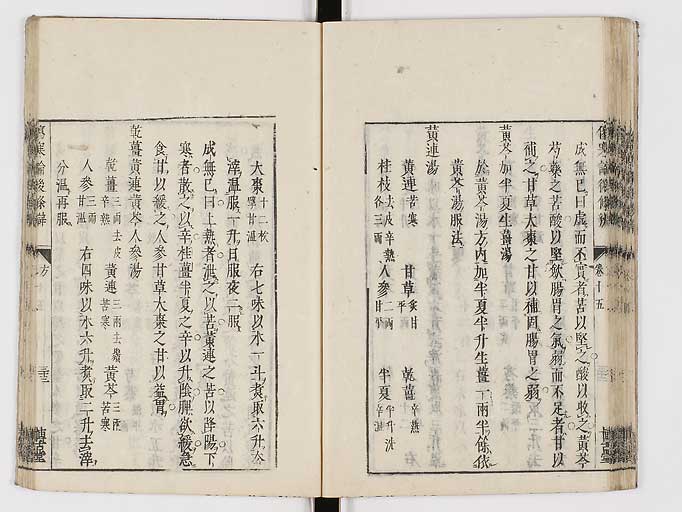 傷寒論後條辨
卷十五
博古堂
成無已曰虛而不實者苦以堅之酸以收之黃芩
芍藥之苦酸以堅斂腸胃之氣弱而不足者甘以
補之甘草大棗之甘以補固腸胃之弱
黃芩加半夏生薑湯
於黃芩湯方內加半夏半升生薑一兩半餘依
黃芩湯服法
黃連湯
黃連苦寒 甘草炙甘平 乾薑辛熱
桂枝去皮辛熱各三兩 人參二兩甘平 半夏半升洗辛溫
大棗十二枚擘甘溫 右七味以水一斗煮取六升去
滓溫服一升日三服夜三服
成無已曰上熱者泄之以苦黃連之苦以降陽下
寒者散之以辛桂薑半夏之辛以升陰脾欲緩急
食甘以緩之人參甘草大棗之甘以益胃
乾薑黃連黃芩人參湯
乾薑三兩去皮辛熱 黃連三兩去鬚苦寒 黃芩三兩苦寒
人參三兩甘溫 右四味以水六升煮取二升去滓
分溫再服
傷寒論後條辨
方
博古堂